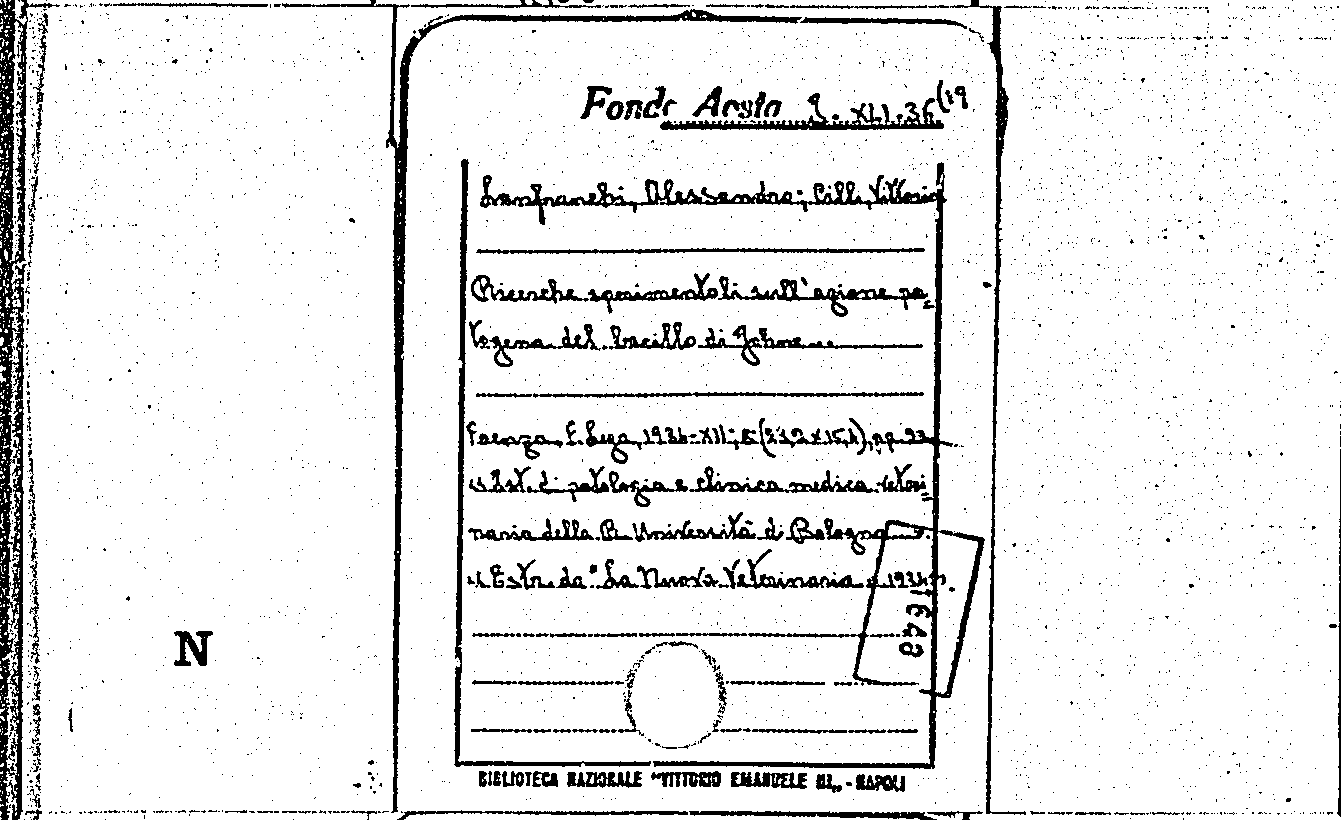 Fondo Aosta J. XLI. 36(19
Lanfranchi, Alessandro; Cilli, Vittorio
Ricerche sperimentali sull'azione pa=
togena del bacillo di Johne...
Faenza, F. Lega, 1934-XII; 8° (23,2x15,4), pp. 23
" Ist. di patologia e clinica medica veteri=
naria della R. Università di Bologna ".
" Estr. da " La Nuova Veterinaria " 1934".
N
BIBLIOTECA NAZIONALE "VITTORIO EMANUELE III" - NAPOLI